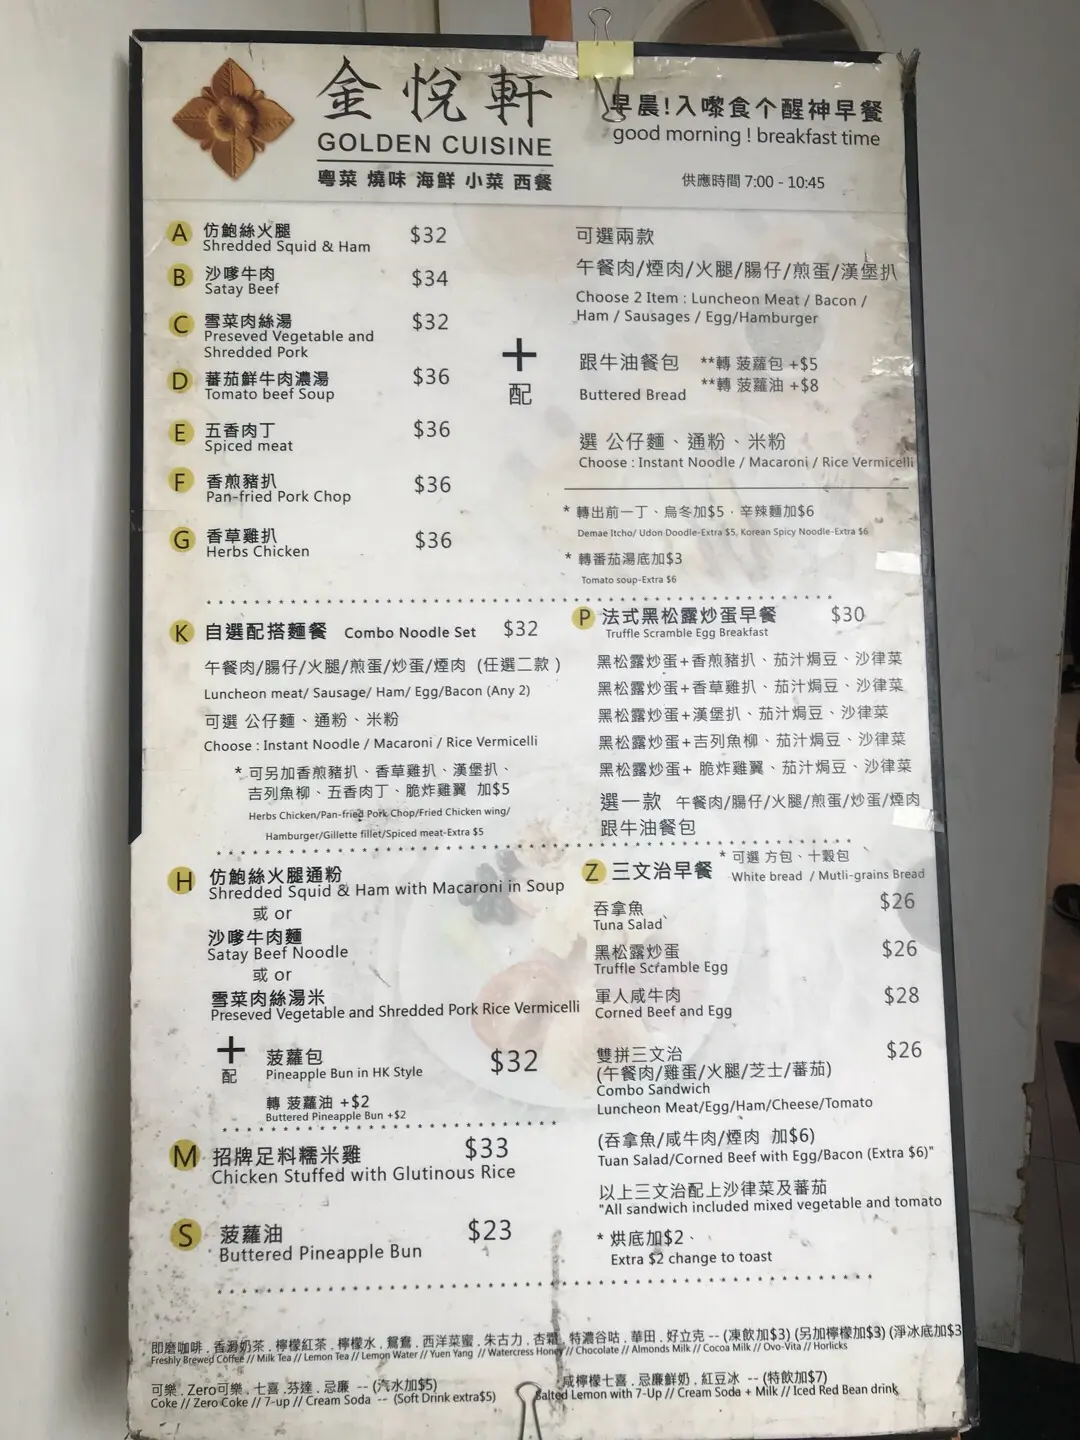 金悅軒
GOLDEN CUISINE
粵菜 燒味 海鮮 小菜 西餐
早晨!入嚟食个醒神早餐
good morning ! breakfast time
供應時間 7:00 - 10:45
A 仿鮑絲火腿 $32
Shredded Squid & Ham
B 沙嗲牛肉 $34
Satay Beef
C 雪菜肉絲湯 $32
Preseved Vegetable and
Shredded Pork
D 蕃茄鮮牛肉濃湯 $36
Tomato beef Soup
E 五香肉丁 $36
Spiced meat
F 香煎豬扒 $36
Pan-fried Pork Chop
G 香草雞扒 $36
Herbs Chicken
+
配
可選兩款
午餐肉/煙肉/火腿/腸仔/煎蛋/漢堡扒
Choose 2 Item : Luncheon Meat / Bacon /
Ham / Sausages / Egg/Hamburger
跟牛油餐包 **轉 菠蘿包 +$5
Buttered Bread **轉 菠蘿油 +$8
選 公仔麵、通粉、米粉
Choose : Instant Noodle / Macaroni / Rice Vermicelli
* 轉出前一丁、烏冬加$5﹐辛辣麵加$6
Demae Itcho/ Udon Doodle-Extra $5, Korean Spicy Noodle-Extra $6
* 轉番茄湯底加$3
Tomato soup-Extra $6
K 自選配搭麵餐 Combo Noodle Set $32
午餐肉/腸仔/火腿/煎蛋/炒蛋/煙肉 (任選二款 )
Luncheon meat/ Sausage/ Ham/ Egg/Bacon (Any 2)
可選 公仔麵、通粉、米粉
Choose : Instant Noodle / Macaroni / Rice Vermicelli
* 可另加香煎豬扒、香草雞扒、漢堡扒、
吉列魚柳、五香肉丁、脆炸雞翼 加$5
Herbs Chicken/Pan-fried Pork Chop/Fried Chicken wing/
Hamburger/Gillette fillet/Spiced meat-Extra $5
P 法式黑松露炒蛋早餐 $30
Truffle Scramble Egg Breakfast
黑松露炒蛋+香煎豬扒、茄汁焗豆、沙律菜
黑松露炒蛋+香草雞扒、茄汁焗豆、沙律菜
黑松露炒蛋+漢堡扒、茄汁焗豆、沙律菜
黑松露炒蛋+吉列魚柳、茄汁焗豆、沙律菜
黑松露炒蛋+ 脆炸雞翼、茄汁焗豆、沙律菜
選一款 午餐肉/腸仔/火腿/煎蛋/炒蛋/煙肉
跟牛油餐包
H 仿鮑絲火腿通粉
Shredded Squid & Ham with Macaroni in Soup
或 or
沙嗲牛肉麵
Satay Beef Noodle
或 or
雪菜肉絲湯米
Preseved Vegetable and Shredded Pork Rice Vermicelli
+ 菠蘿包 $32
配 Pineapple Bun in HK Style
轉 菠蘿油 +$2
Buttered Pineapple Bun +$2
M 招牌足料糯米雞 $33
Chicken Stuffed with Glutinous Rice
S 菠蘿油 $23
Buttered Pineapple Bun
Z 三文治早餐 * 可選 方包、十穀包
White bread / Mutli-grains Bread
吞拿魚 $26
Tuna Salad
黑松露炒蛋 $26
Truffle Scramble Egg
軍人咸牛肉 $28
Corned Beef and Egg
雙拼三文治 $26
(午餐肉/雞蛋/火腿/芝士/蕃茄)
Combo Sandwich
Luncheon Meat/Egg/Ham/Cheese/Tomato
(吞拿魚/咸牛肉/煙肉 加$6)
Tuan Salad/Corned Beef with Egg/Bacon (Extra $6)"
以上三文治配上沙律菜及蕃茄
"All sandwich included mixed vegetable and tomato
* 烘底加$2、
Extra $2 change to toast
即磨咖啡﹐香滑奶茶﹐檸檬紅茶﹐檸檬水﹐鴛鴦﹐西洋菜蜜﹐朱古力﹐杏霜﹐特濃谷咕﹐華田﹐好立克 -- (凍飲加$3) (另加檸檬加$3) (淨冰底加$3
Freshly Brewed Coffee // Milk Tea // Lemon Tea // Lemon Water // Yuen Yang // Watercress Honey // Chocolate // Almonds Milk // Cocoa Milk // Ovo-Vita // Horlicks
可樂﹐Zero可樂﹐七喜﹐芬達﹐忌廉 -- (汽水加$5)
Coke // Zero Coke // 7-up // Cream Soda -- (Soft Drink extra$5)
咸檸檬七喜﹐忌廉鮮奶﹐紅豆冰 -- (特飲加$7)
Salted Lemon with 7-Up // Cream Soda + Milk // Iced Red Bean drink